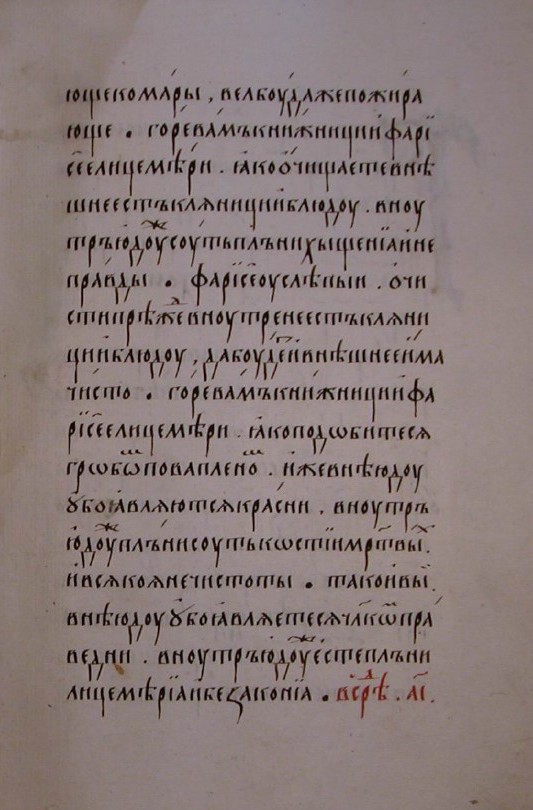 ющекома́ры , велбоу́да́жепожира́
юще . го́рева́мъкни́жницийфарї
се́елицемѣ́ри . ꙗ҆́коо҆чища́етевнѣ́
шнееестъкляни́цийблю́доу . вноу
трьꙗ҆доуⷤсоу́тьплъ́нихыще́нїаине
пра́вды . фарїсе́оуслѣпы́и . о҆чи
стипрѣ́жеⷣвноу́тренееестъкляни́
цийблю́доу , дабоу́детⸯивнѣ́шнееи҆ма
чи́сто . го́рева́мъкни́жницийфа
рїсе́елицемѣ́ри . ꙗ҆́коподѡ́битеся
гро́бѡⷨповаплено́ⷨ . и҆́жевнѣю҆доу
ꙋ҆боꙗ҆вля́ютсякра́сни , вноу́трь
ю҆доуⷤплъ́нисоу́тькѡсті́имрт҃вы́ⷯ .
ився́коянечистоты̀ . та́коивы̀ .
внѣю҆доуꙋ҆боꙗ҆вля́етесячл҃кѡⷨпра́
ведни . вноутрьюдоуⷤестеплъ́ни
лицемѣ́рїаибезⸯако́нїа . всреⷣ . а҃і .